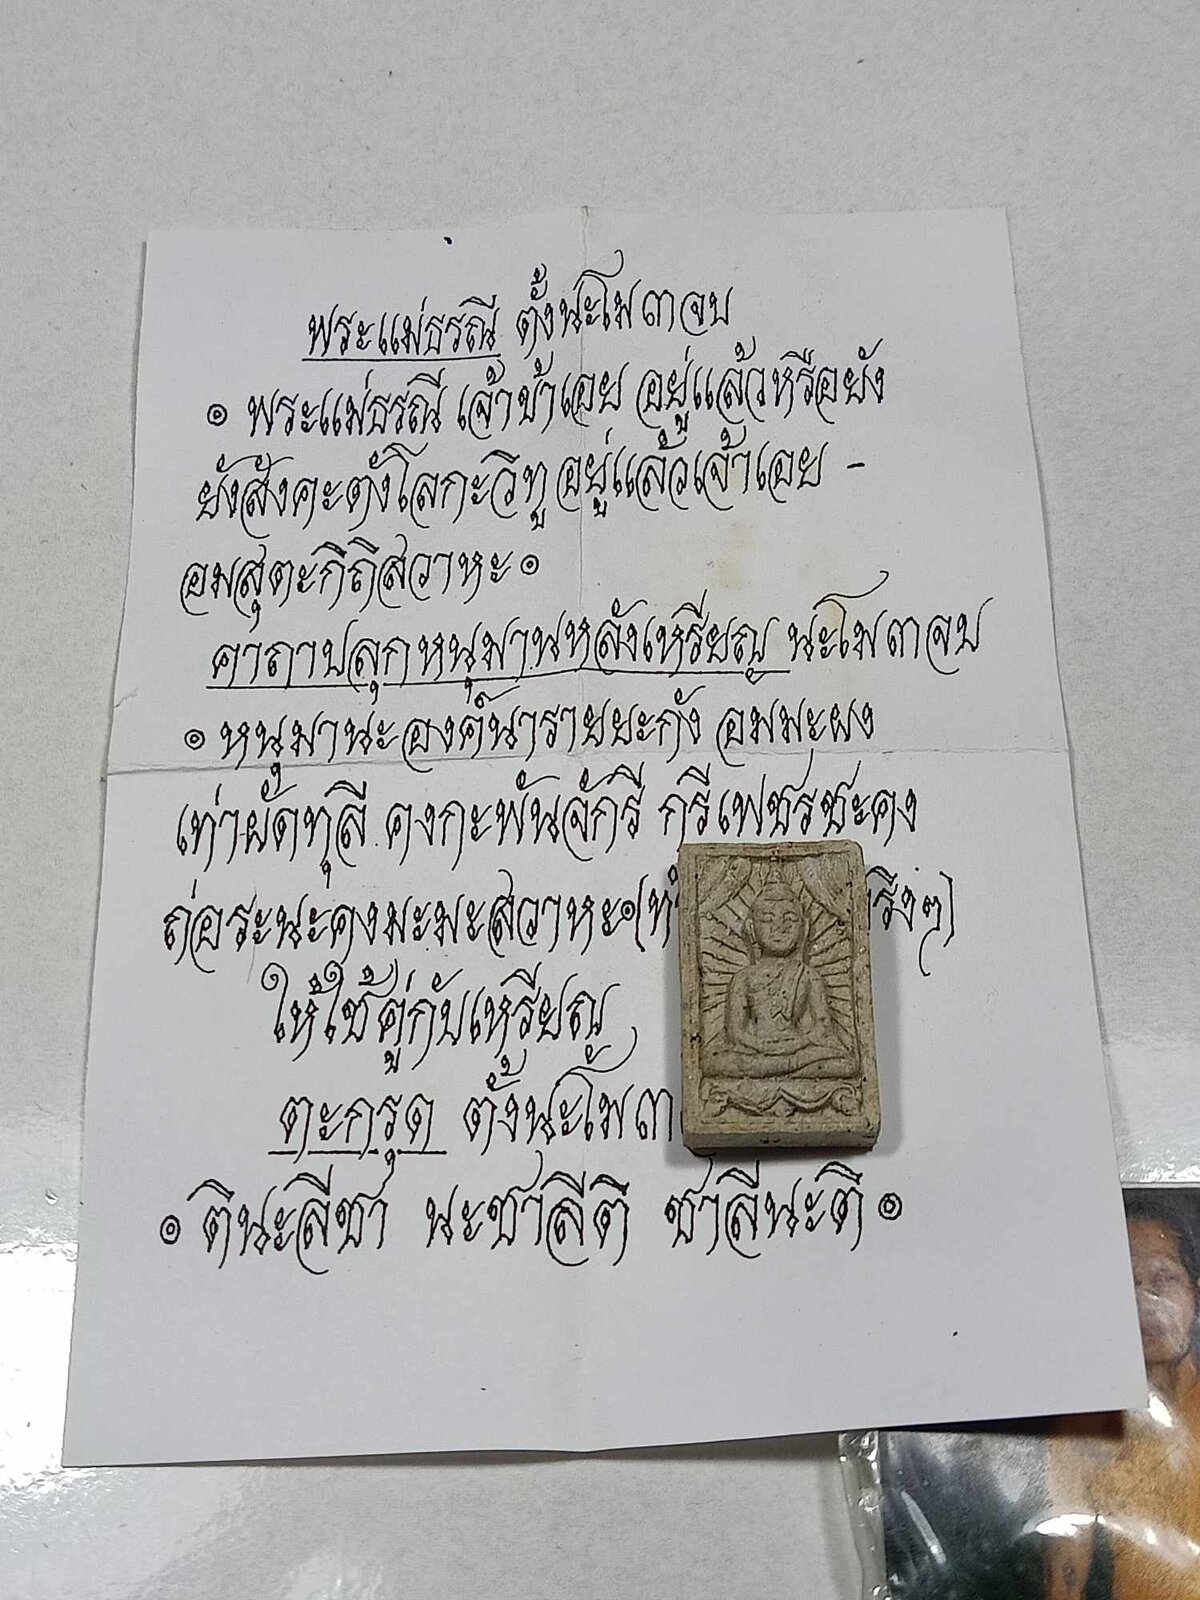 พระแม่ธรณี ตั้งนะโม ๓ จบ
๏ พระแม่ธรณี เจ้าข้าเอย อยู่แล้วหรือยัง
ยังสังคะตังโลกะวิทู อยู่แล้วเจ้าเอย -
อมสุตะกิถิสวาหะ ๏
คาถาปลุกหนุมานหลังเหรียญ นะโม ๓ จบ
๏ หนุมานะ องค์นารายยะกัง อมมะผง
เท่าผัดทุลี คงกะพันจักรี กรีเพชรชะคง
ถ่อระนะคงมะมะสวาหะ๏(
รึงๆ)
ให้ใช้คู่กับเหรียญ
ตะกรุด ตั้งนะโม ๓
๏ ตินะสีชา นะชาลีติ ชาลีนะติ ๏